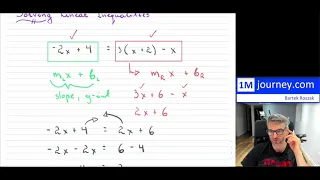 Solving Linear Inequalities
-2x + 4 = 3(x+2) - x
m₂x + b₂ m_R x + b_R
slope, y-int 3x+6 - x
2x + 6
-2x + 4 = 2x + 6
-2x - 2x = 6 - 4
1M journey.com
Bartek Roszak